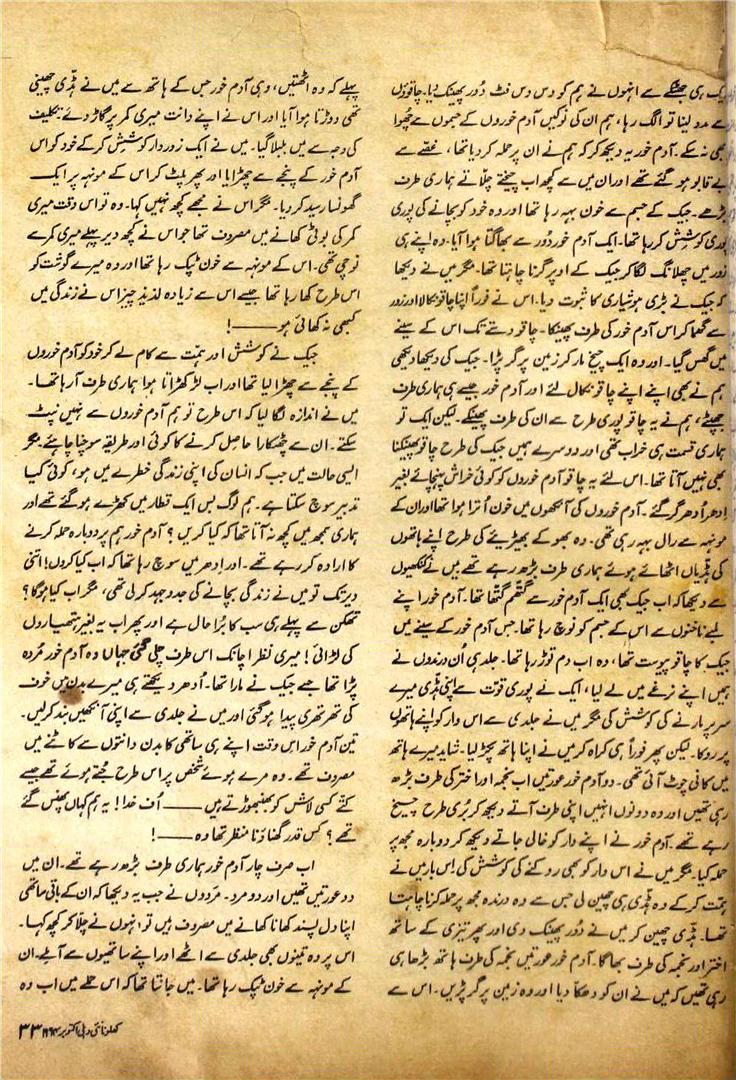 یک ہی جھٹکے سے انہوں نے ہم کو دس دس فٹ دُور پھینک دیا۔ چاقوؤں
سے مدد لینا تو الگ رہا، ہم ان کی نوکیں آدم خوروں کے جسموں سے چھوا
بھی نہ سکے۔ آدم خور یہ دیکھ کر کہ ہم نے ان پر حملہ کر دیا تھا، غصّے سے
بے قابو ہو گئے تھے اور ان میں سے کچھ اب چیختے چلّاتے ہماری طرف
بڑھے۔ جیک کے جسم سے خون بہہ رہا تھا اور وہ خود کو بچانے کی پوری
پوری کوشش کر رہا تھا۔ ایک آدم خور دُور سے بھاگتا ہوا آیا۔ وہ اپنے ہی
زور میں چھلانگ لگا کر جیک کے اوپر گرنا چاہتا تھا۔ مگر میں نے دیکھا
کہ جیک نے بڑی ہوشیاری کا ثبوت دیا۔ اس نے فوراً اپنا چاقو نکالا اور زور
سے گھما کر اس آدم خور کی طرف پھینکا۔ چاقو دستے تک اس کے سینے
میں گھس گیا۔ اور وہ ایک چیخ مار کر زمین پر گر پڑا۔ جیک کی دیکھا دیکھی
ہم نے بھی اپنے اپنے چاقو نکال لئے اور آدم خور جیسے ہی ہماری طرف
جھپٹے، ہم نے یہ چاقو پوری طرح سے ان کی طرف پھینکے۔ لیکن ایک تو
ہماری قسمت ہی خراب تھی اور دوسرے ہمیں جیک کی طرح چاقو پھینکنا
بھی نہیں آتا تھا۔ اس لئے یہ چاقو آدم خوروں کو کوئی خراش پہنچائے بغیر
اِدھر اُدھر گر گئے۔ آدم خوروں کی آنکھوں میں خون اُترا ہوا تھا اور ان کے
مونہہ سے رال بہہ رہی تھی۔ وہ بھوکے بھیڑیئے کی طرح اپنے ہاتھوں
کی ہڈّیاں اٹھائے ہوئے ہماری طرف بڑھ رہے تھے میں نے کنکھیوں
سے دیکھا کہ اب جیک بھی ایک آدم خور سے گتھم گتھا تھا۔ آدم خور اپنے
لمبے ناخنوں سے اس کے جسم کو نوچ رہا تھا۔ جس آدم خور کے سینے میں
جیک کا چاقو پیوست تھا، وہ اب دم توڑ رہا تھا۔ جلد ہی اُن درندوں نے
ہمیں اپنے نرغے میں لے لیا، ایک نے پوری قوت سے اپنی ہڈّی میرے
سر پر مارنے کی کوشش کی مگر میں نے جلدی سے اس وار کو اپنے ہاتھ
پر روکا۔ لیکن پھر فوراً ہی کراہ کر میں نے اپنا ہاتھ پکڑ لیا۔ شاید میرے ہاتھ
میں کافی چوٹ آئی تھی۔ دو آدم خور عورتیں اب نجمہ اور اختر کی طرف بڑھ
رہی تھیں اور وہ دونوں انہیں اپنی طرف آتے دیکھ کر بُری طرح چیخ
رہے تھے۔ آدم خور نے اپنے وار کو خالی جاتے دیکھ کر دوبارہ مجھ پر
حملہ کیا۔ مگر میں نے اس وار کو بھی روکنے کی کوشش کی۔ اس بار میں نے
ہمّت کر کے وہ ہڈّی ہی چھین لی جس سے وہ درندہ مجھ پر حملہ کرنا چاہتا
تھا۔ ہڈّی چھین کر میں نے دُور پھینک دی اور پھر تیزی کے ساتھ
اختر اور نجمہ کی طرف بھاگا۔ آدم خور عورتیں نجمہ کی طرف ہاتھ بڑھا ہی
رہی تھیں کہ میں نے ان کو دھکّا دیا اور وہ زمین پر گر پڑیں۔ اس سے
پہلے کہ وہ اٹھتیں، وہی آدم خور جس کے ہاتھ سے میں نے ہڈّی چھینی
تھی دوڑتا ہوا آیا اور اس نے اپنے دانت میری کمر پر گاڑ دئے۔ تکلیف
کی وجہ سے میں بلبلا گیا۔ میں نے ایک زوردار کوشش کر کے خود کو اس
آدم خور کے پنجے سے چھڑایا اور پھر پلٹ کر اس کے مونہہ پر ایک
گھونسا رسید کر دیا۔ مگر اس نے مجھے کچھ نہیں کہا۔ وہ تو اس وقت میری
کمر کی بوٹی کھانے میں مصروف تھا جو اس نے کچھ دیر پہلے میری کمر سے
نوچی تھی۔ اس کے مونہہ سے خون ٹپک رہا تھا اور وہ میرے گوشت کو
اس طرح کھا رہا تھا جیسے اس سے زیادہ لذیذ چیز اس نے زندگی میں
کبھی نہ کھائی ہو ——!
جیک نے کوشش اور ہمّت سے کام لے کر خود کو آدم خوروں
کے پنجے سے چھڑا لیا تھا اور اب لڑکھڑاتا ہوا ہماری طرف آ رہا تھا۔
میں نے اندازہ لگا لیا کہ اس طرح تو ہم آدم خوروں سے نہیں نپٹ
سکتے۔ ان سے چھٹکارا حاصل کرنے کا کوئی اور طریقہ سوچنا چاہئے۔ مگر
ایسی حالت میں جب کہ انسان کی اپنی زندگی خطرے میں ہو، کوئی کیا
تدبیر سوچ سکتا ہے۔ ہم لوگ بس ایک قطار میں کھڑے ہو گئے تھے اور
ہماری سمجھ میں کچھ نہ آتا تھا کہ کیا کریں؟ آدم خور ہم پر دوبارہ حملہ کرنے
کا ارادہ کر رہے تھے۔ اور اِدھر میں سوچ رہا تھا کہ اب کیا کروں! اتنی
دیر تک تو میں نے زندگی بچانے کی جدوجہد کر لی تھی، مگر اب کیا ہوگا؟
تھکن سے پہلے ہی سب کا بُرا حال ہے اور پھر اب یہ بغیر ہتھیاروں
کی لڑائی! میری نظر اچانک اس طرف چلی گئی جہاں وہ آدم خور مُردہ
پڑا تھا جسے جیک نے مارا تھا۔ اُدھر دیکھتے ہی میرے بدن میں خوف
کی تھرتھری پیدا ہو گئی اور میں نے جلدی سے اپنی آنکھیں بند کر لیں۔
تین آدم خور اس وقت اپنے ہی ساتھی کا بدن دانتوں سے کاٹنے میں
مصروف تھے۔ وہ مرے ہوئے شخص پر اس طرح جُتے ہوئے تھے جیسے
کتّے کسی لاش کو بھنبھوڑتے ہیں —— اُف خدا! یہ ہم کہاں پھنس گئے
تھے؟ کس قدر گھناؤنا منظر تھا وہ ——!
اب صرف چار آدم خور ہماری طرف بڑھ رہے تھے۔ ان میں
دو عورتیں تھیں اور دو مرد۔ مردوں نے جب یہ دیکھا کہ ان کے باقی ساتھی
اپنا دل پسند کھانا کھانے میں مصروف ہیں تو انہوں نے چلّا کر کچھ کہا۔
اس پر وہ تینوں بھی جلدی سے اٹھے اور اپنے ساتھیوں سے آ ملے۔ ان
کے مونہہ سے خون ٹپک رہا تھا۔ میں جانتا تھا کہ اس حملے میں اب وہ
کھلونا نئی دہلی اکتوبر ۱۹۶۴ء ۳۳